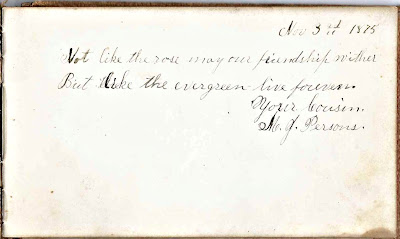 Nov 3rd 1875
Not like the rose may our friendship wither
But like the evergreen live forever.
Your Cousin.
M. J. Persons.